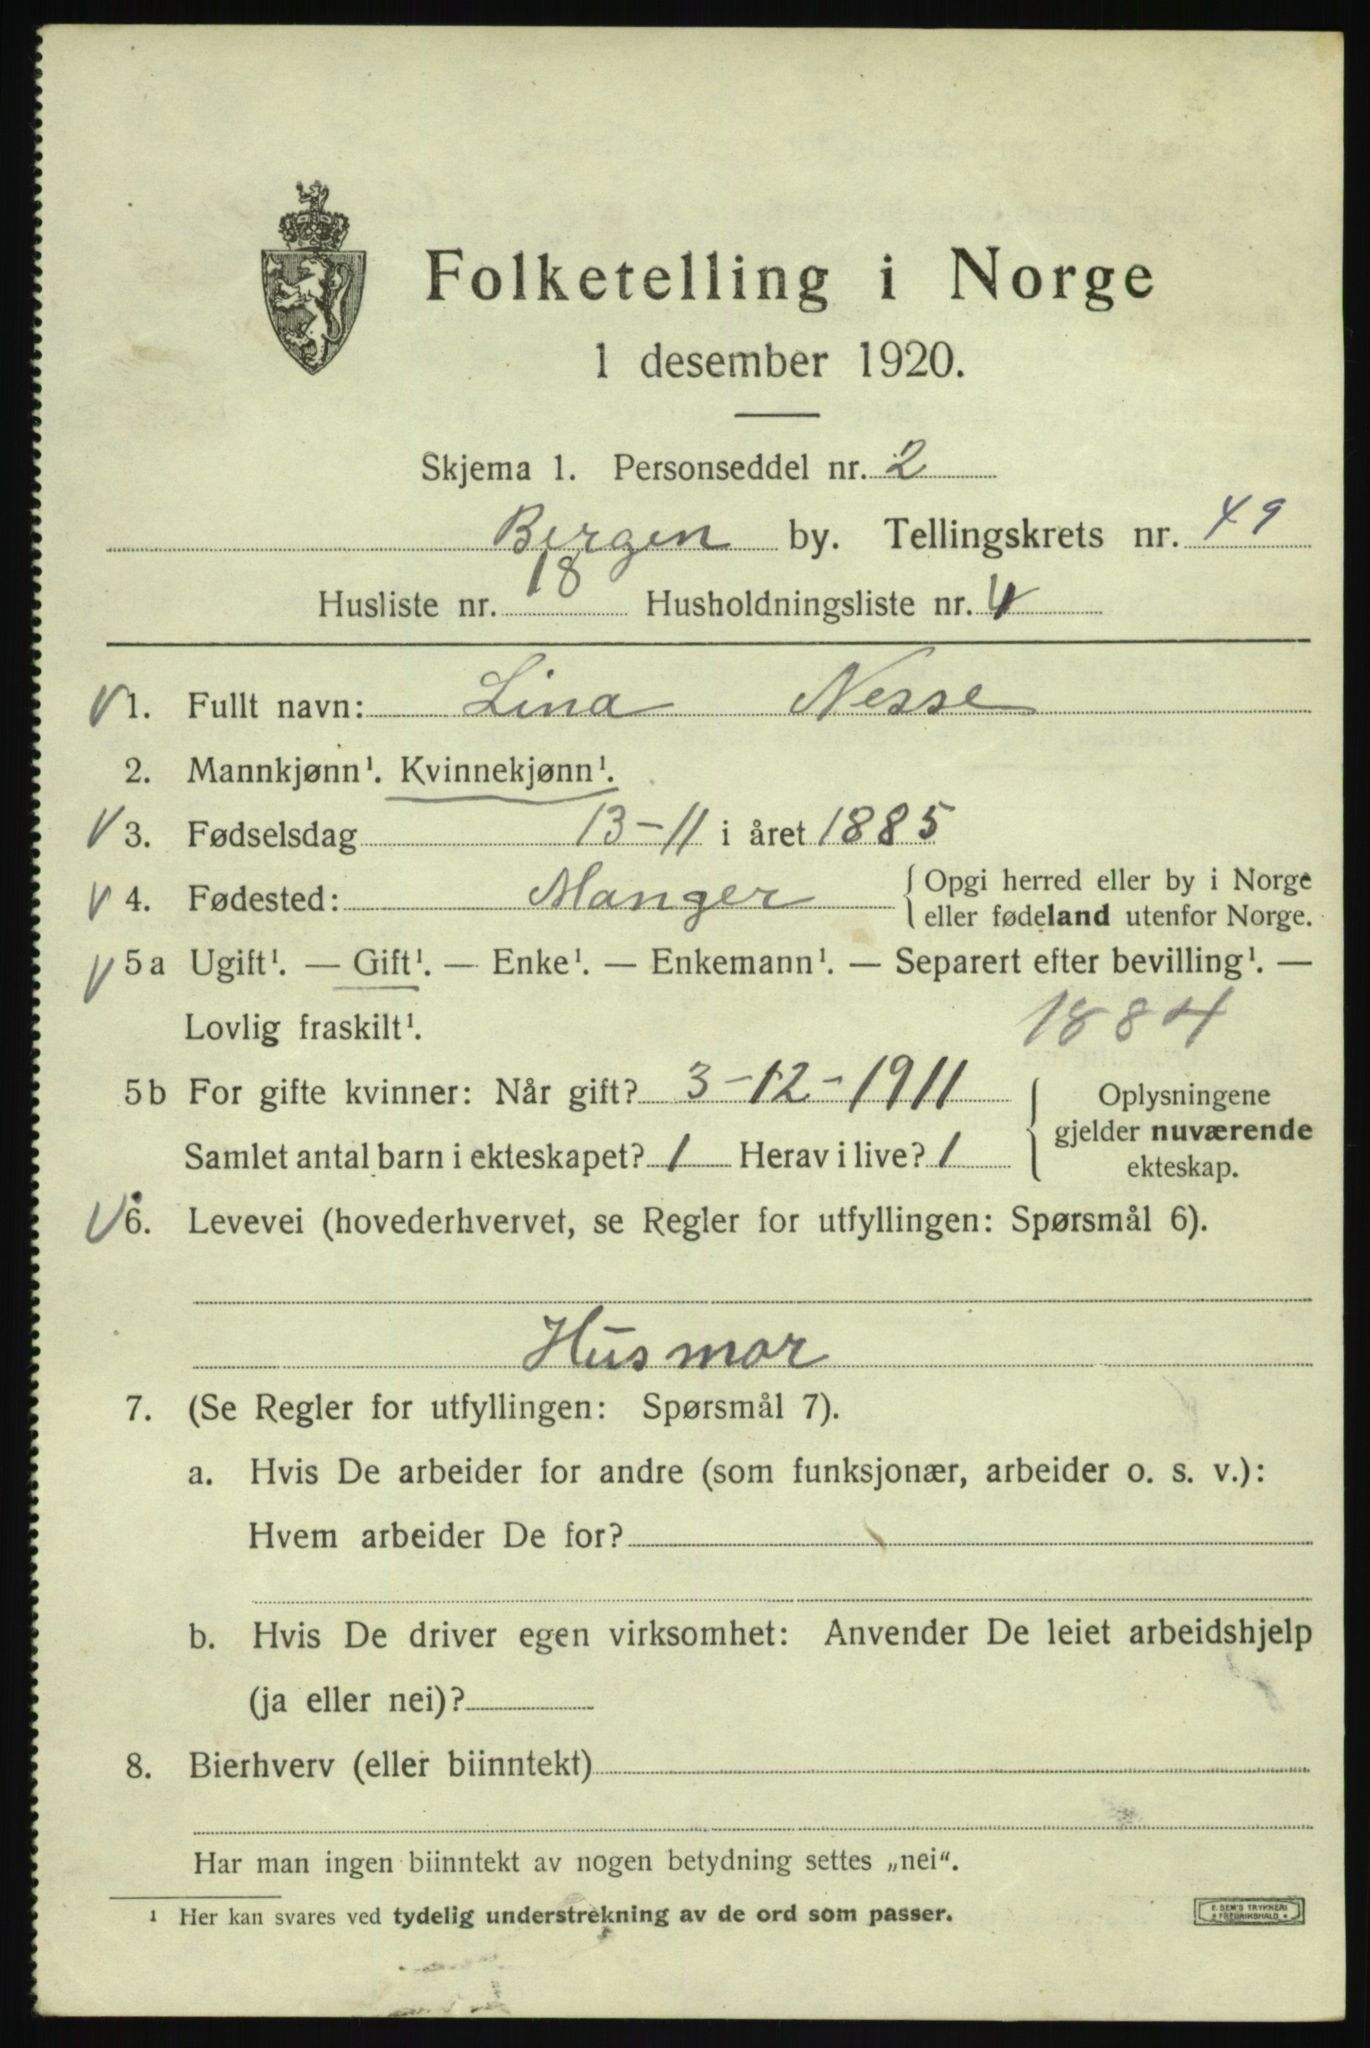 Folketelling i Norge
1 desember 1920.
Skjema 1. Personseddel nr. 2
Bergen by. Tellingskrets nr. 49
Husliste nr. 18 Husholdningsliste nr. 4
1. Fullt navn: Lina Nesse
2. Mannkjønn¹. Kvinnekjønn¹.
3. Fødselsdag 13-11 i året 1885
4. Fødested: Manger {Opgi herred eller by i Norge
eller fødeland utenfor Norge.
5 a Ugift¹. — Gift¹. — Enke¹. — Enkemann¹. — Separert efter bevilling¹. —
Lovlig fraskilt¹. 1884
5 b For gifte kvinner: Når gift? 3-12-1911
Samlet antal barn i ekteskapet? 1 Herav i live? 1
Oplysningene
gjelder nuværende
ekteskap.
6. Levevei (hovederhvervet, se Regler for utfyllingen: Spørsmål 6).
Husmor
7. (Se Regler for utfyllingen: Spørsmål 7).
a. Hvis De arbeider for andre (som funksjonær, arbeider o. s. v.):
Hvem arbeider De for?
b. Hvis De driver egen virksomhet: Anvender De leiet arbeidshjelp
(ja eller nei)?
8. Bierhverv (eller biinntekt)
Har man ingen biinntekt av nogen betydning settes „nei“.
¹ Her kan svares ved tydelig understrekning av de ord som passer.
E. SEM'S TRYKKERI
FREDRIKSHALD